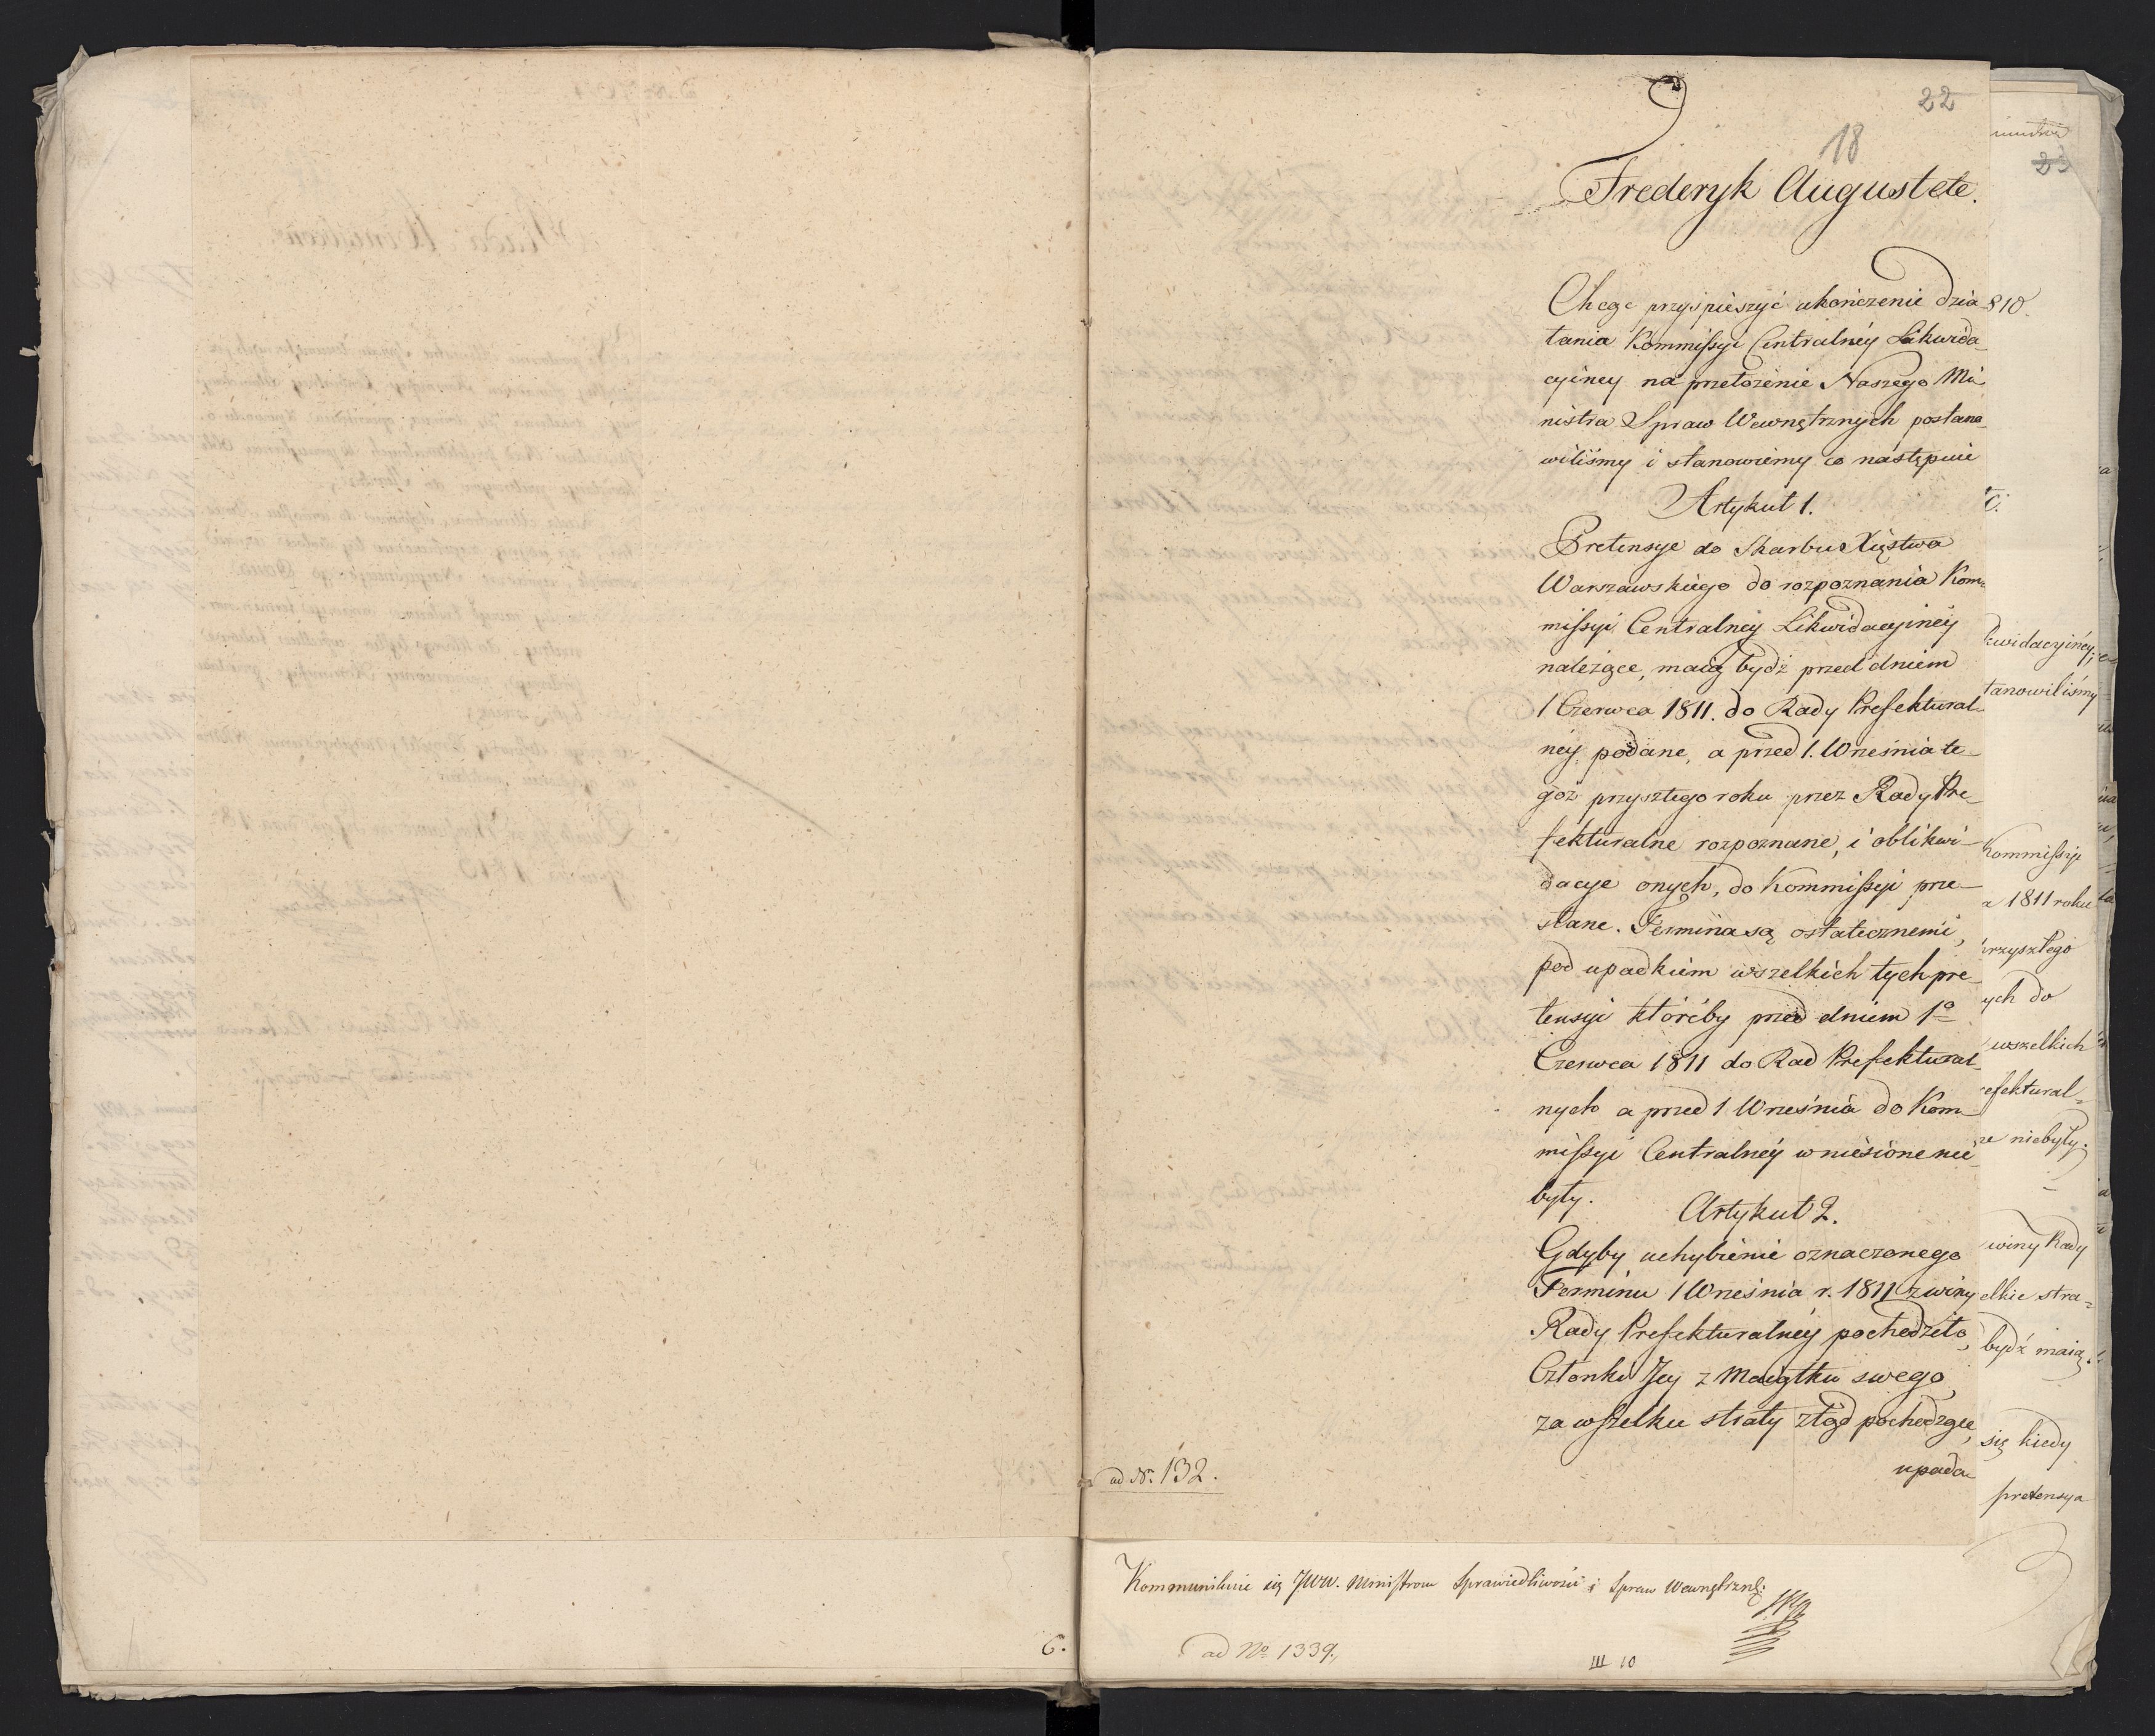 22
18
Frederyk August etc.
Chcąc przyspieszyć ukończenie dzia-
łania Kommissyi Centralnéy Likwida-
cyiney na przełożenie Naszego Mi-
nistra Spraw Wewnętrznych postano-
wiliśmy i stanowiemy co następuie
Artykuł 1.
Pretensye do Skarbu Xięstwa
Warszawskiego do rozpoznania Kom-
missyi Centralney Likwidacyinéy
należące, maią bydź przed dniem
1 Czerwca 1811. do Rady Prefektural-
néy podane, a przed 1. Września te-
goż przyszłego roku przez Rady Pre-
fekturalne rozpoznane, i oblikwi-
dacye onych, do Kommissyi prze-
słane. Termina są ostatecznemi,
pod upadkiem wszelkich tych pre-
tensyi któréby przed dniem 1º
Czerwca 1811 do Rad Prefektural-
nych a przed 1 Września do Kom-
missyi Centralnéy wniesione nie
były.
Artykuł 2.
Gdyby uchybienie oznaczonego
Terminu 1 Września r. 1811 z winy
Rady Prefekturalnéy pochodziło,
Członki Jey z Maiątku swego,
za wszelkie straty ztąd pochodzące,
upada
ad Nr. 132.
Kommunikuie się JWW. Ministrom Sprawiedliwości i Spraw Wewnętrzn:
ad No 1339.
III 10
6.
23
810.
kwidacyinéy;
tanowiliśmy
Kommissyi
a 1811 roku
przyszłego
ych do
wszelkich
efektural=
ze niebyły.
winy Rady
elkie stra=
bydź maią.
się kiedy
pretensya